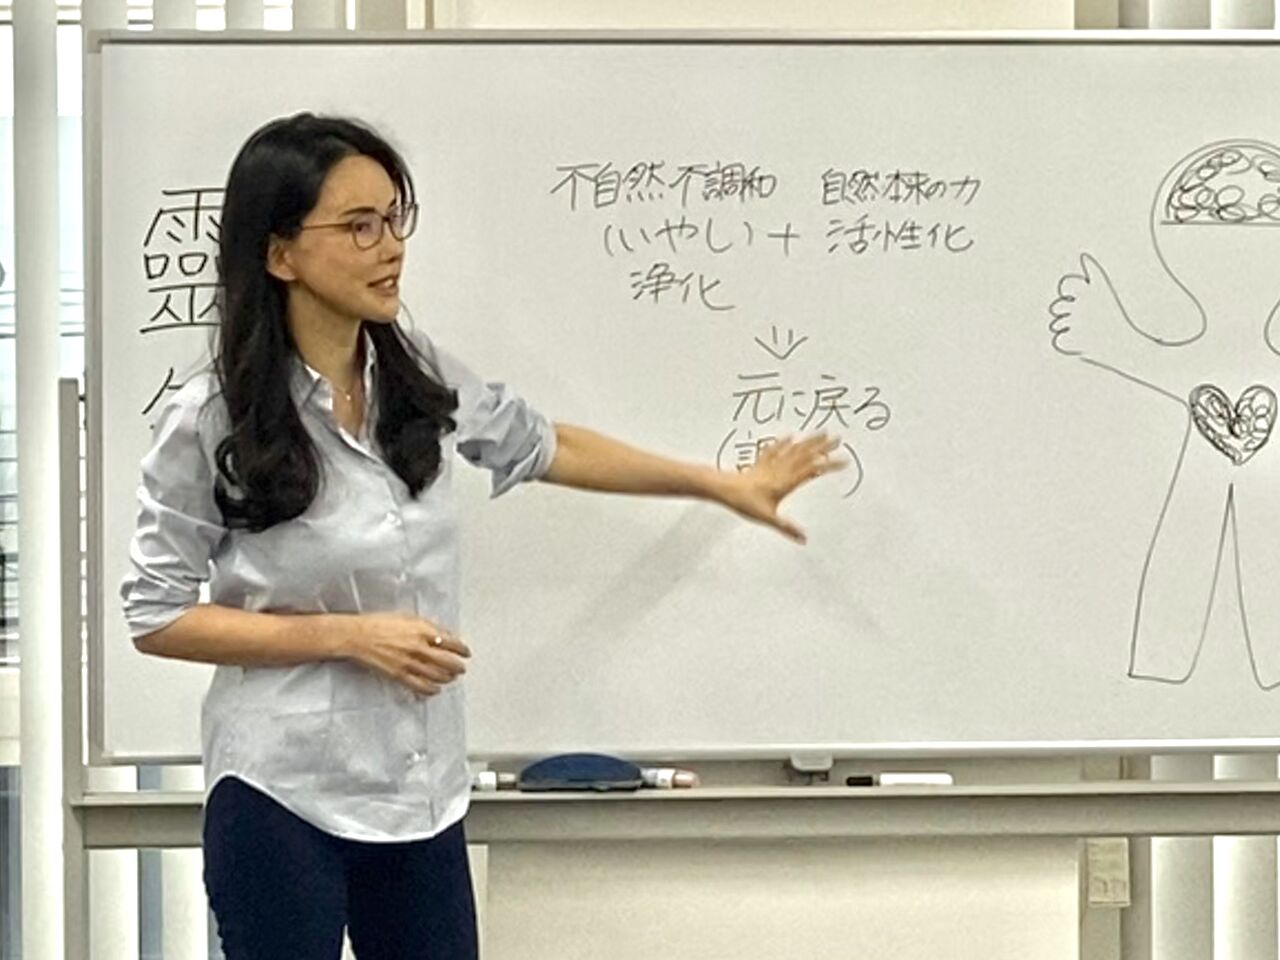 靈
不自然不調和 自然本来の力
(いやし)+ 活性化
浄化
元に戻る
(調
)